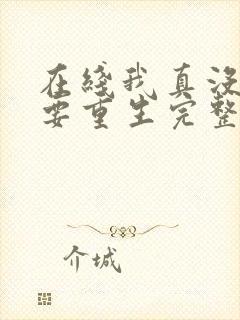 在綫我真没
要重生完整
介城